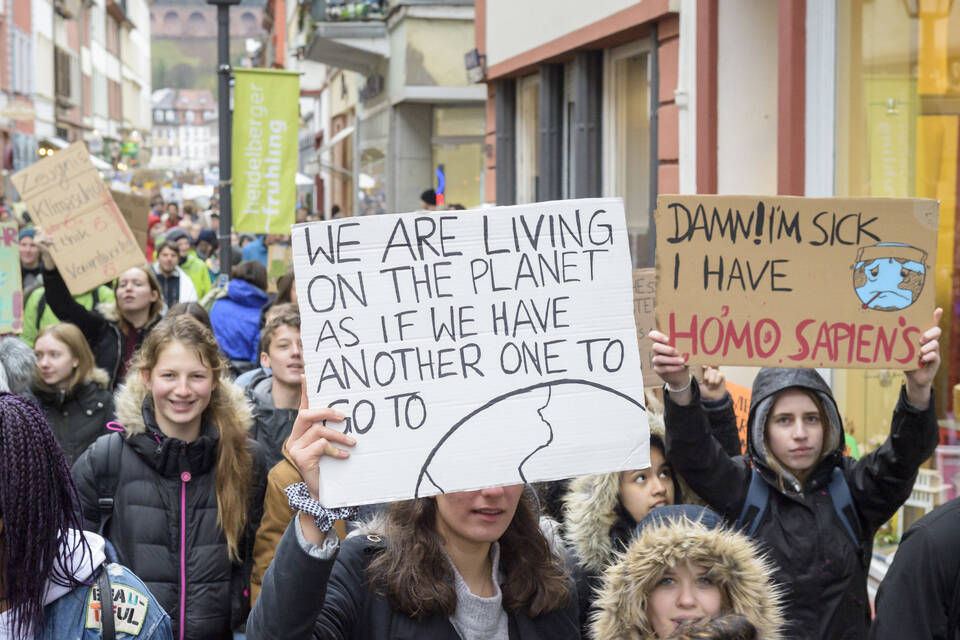 heidelberger
frühling
Zeugnis
Klimaschutz
WE ARE LIVING
ON THE PLANET
AS IF WE HAVE
ANOTHER ONE TO
GO TO
DAMN! I'M SICK
I HAVE
HOMO SAPIENS
BEAU-
TIFUL